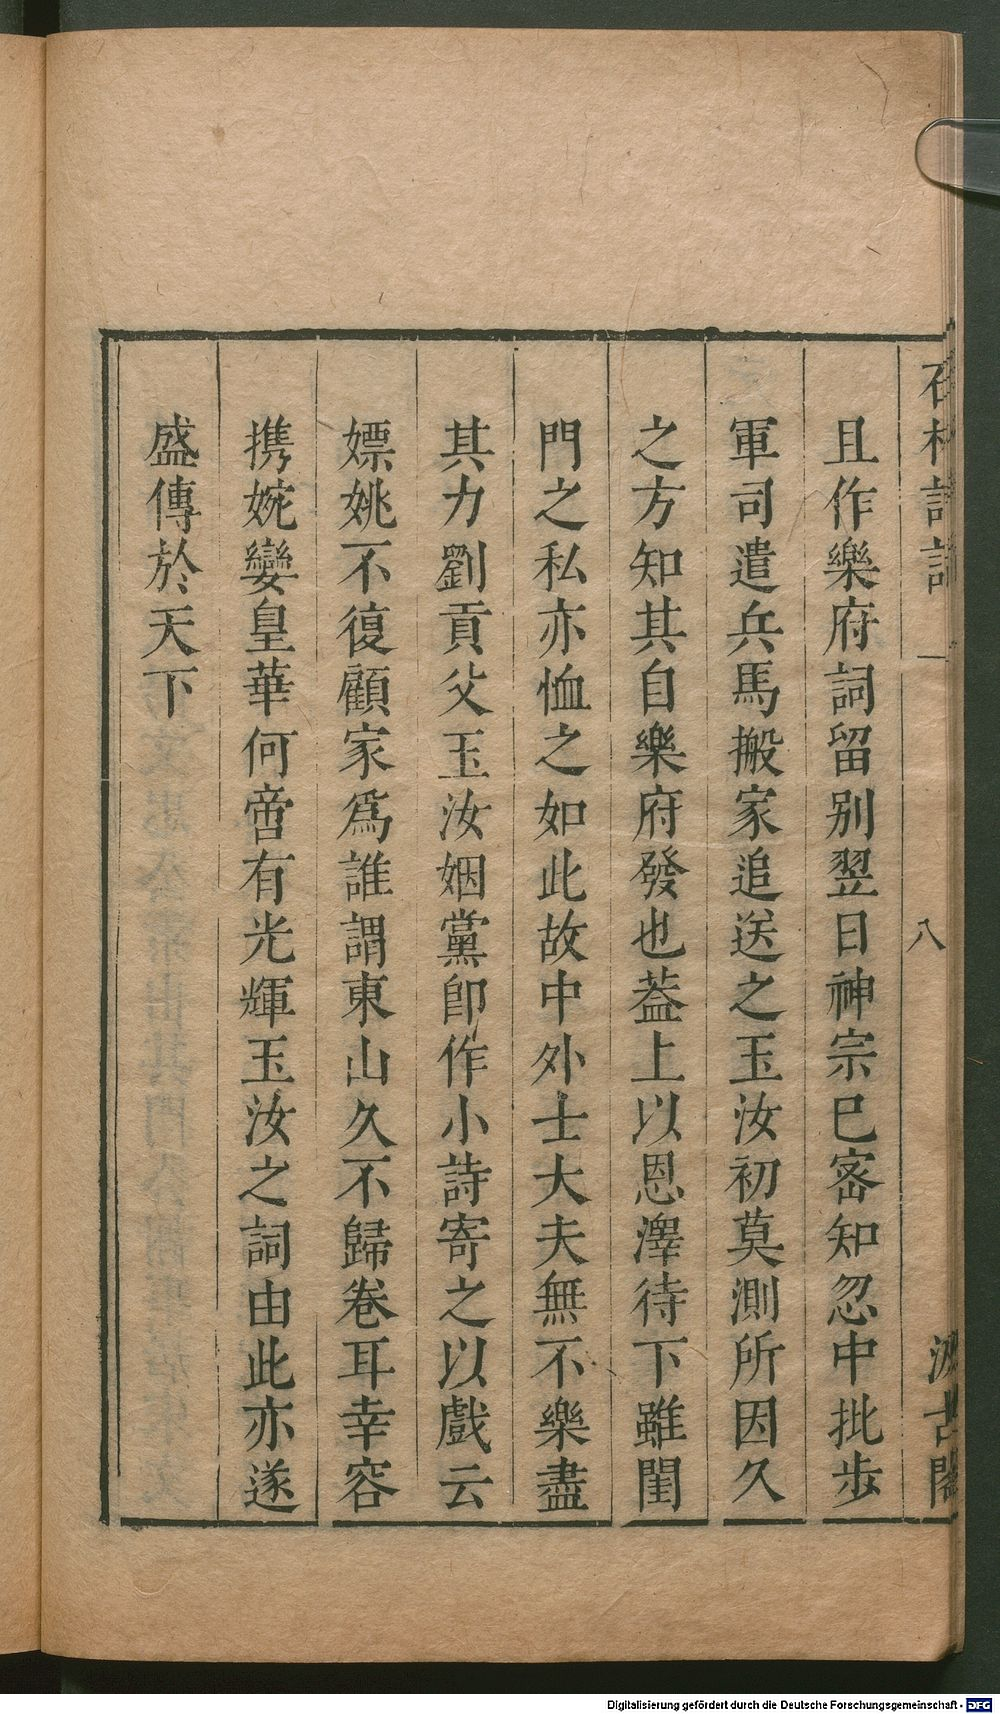 石林詩話 一 八 汲古閣
且作樂府詞留别翌日神宗巳宻知忽中批步
軍司遣兵馬搬家追送之玉汝初莫測所因久
之方知其自樂府發也葢上以恩澤待下雖閨
門之私亦恤之如此故中外士大夫無不樂盡
其力劉貢父玉汝姻黨卽作小詩寄之以戲云
嫖姚不復顧家爲誰謂東山久不歸卷耳幸容
携婉孌皇華何啻有光輝玉汝之詞由此亦遂
盛傳於天下
Digitalisierung gefördert durch die Deutsche Forschungsgemeinschaft - DFG